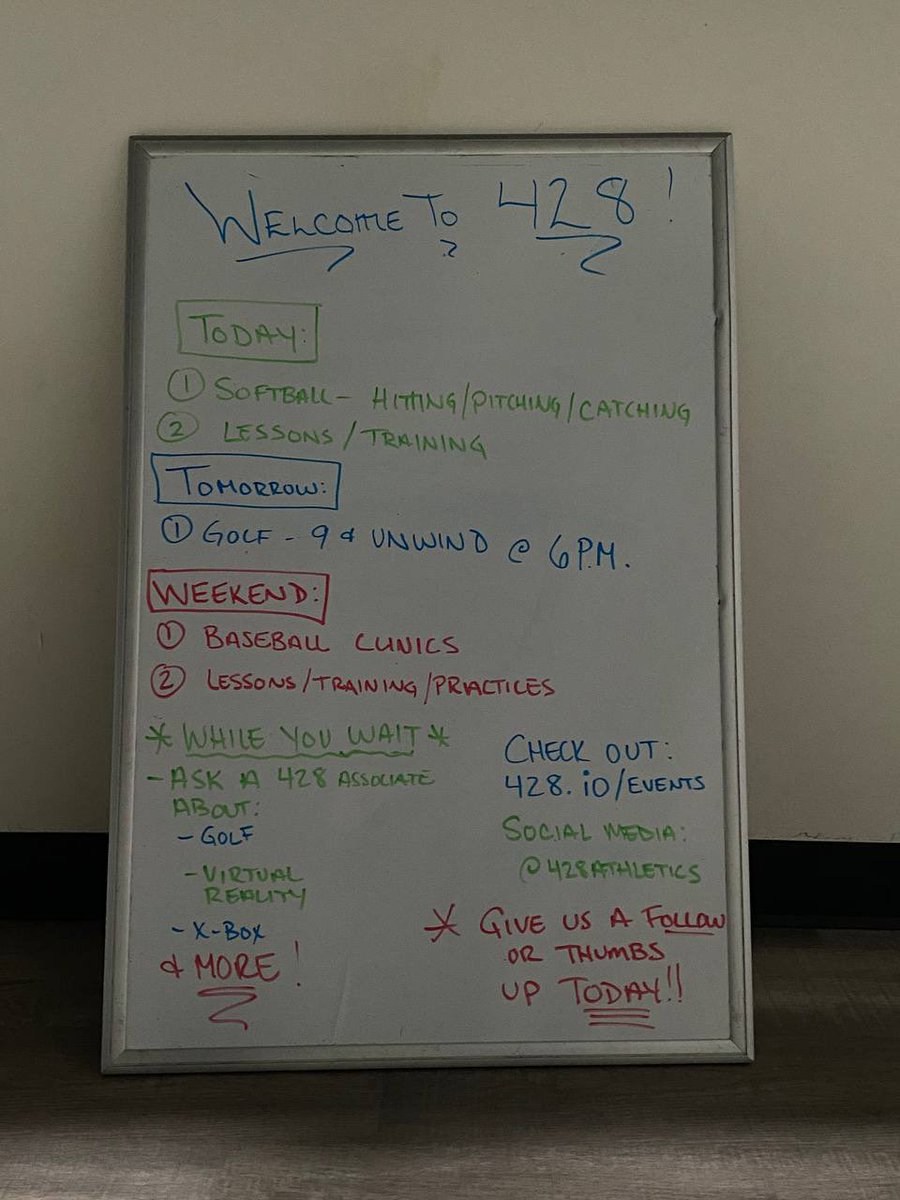 WELCOME TO 428!
TODAY:
① SOFTBALL - HITTING/PITCHING/CATCHING
② LESSONS/TRAINING
TOMORROW:
① GOLF - 9 & UNWIND @ 6 P.M.
WEEKEND:
① BASEBALL CLINICS
② LESSONS/TRAINING/PRACTICES
* WHILE YOU WAIT *
- ASK A 428 ASSOCIATE
ABOUT:
- GOLF
- VIRTUAL
REALITY
- X-BOX
& MORE!
CHECK OUT:
428.io/EVENTS
SOCIAL MEDIA:
@428ATHLETICS
* GIVE US A FOLLOW
OR THUMBS
UP TODAY!!